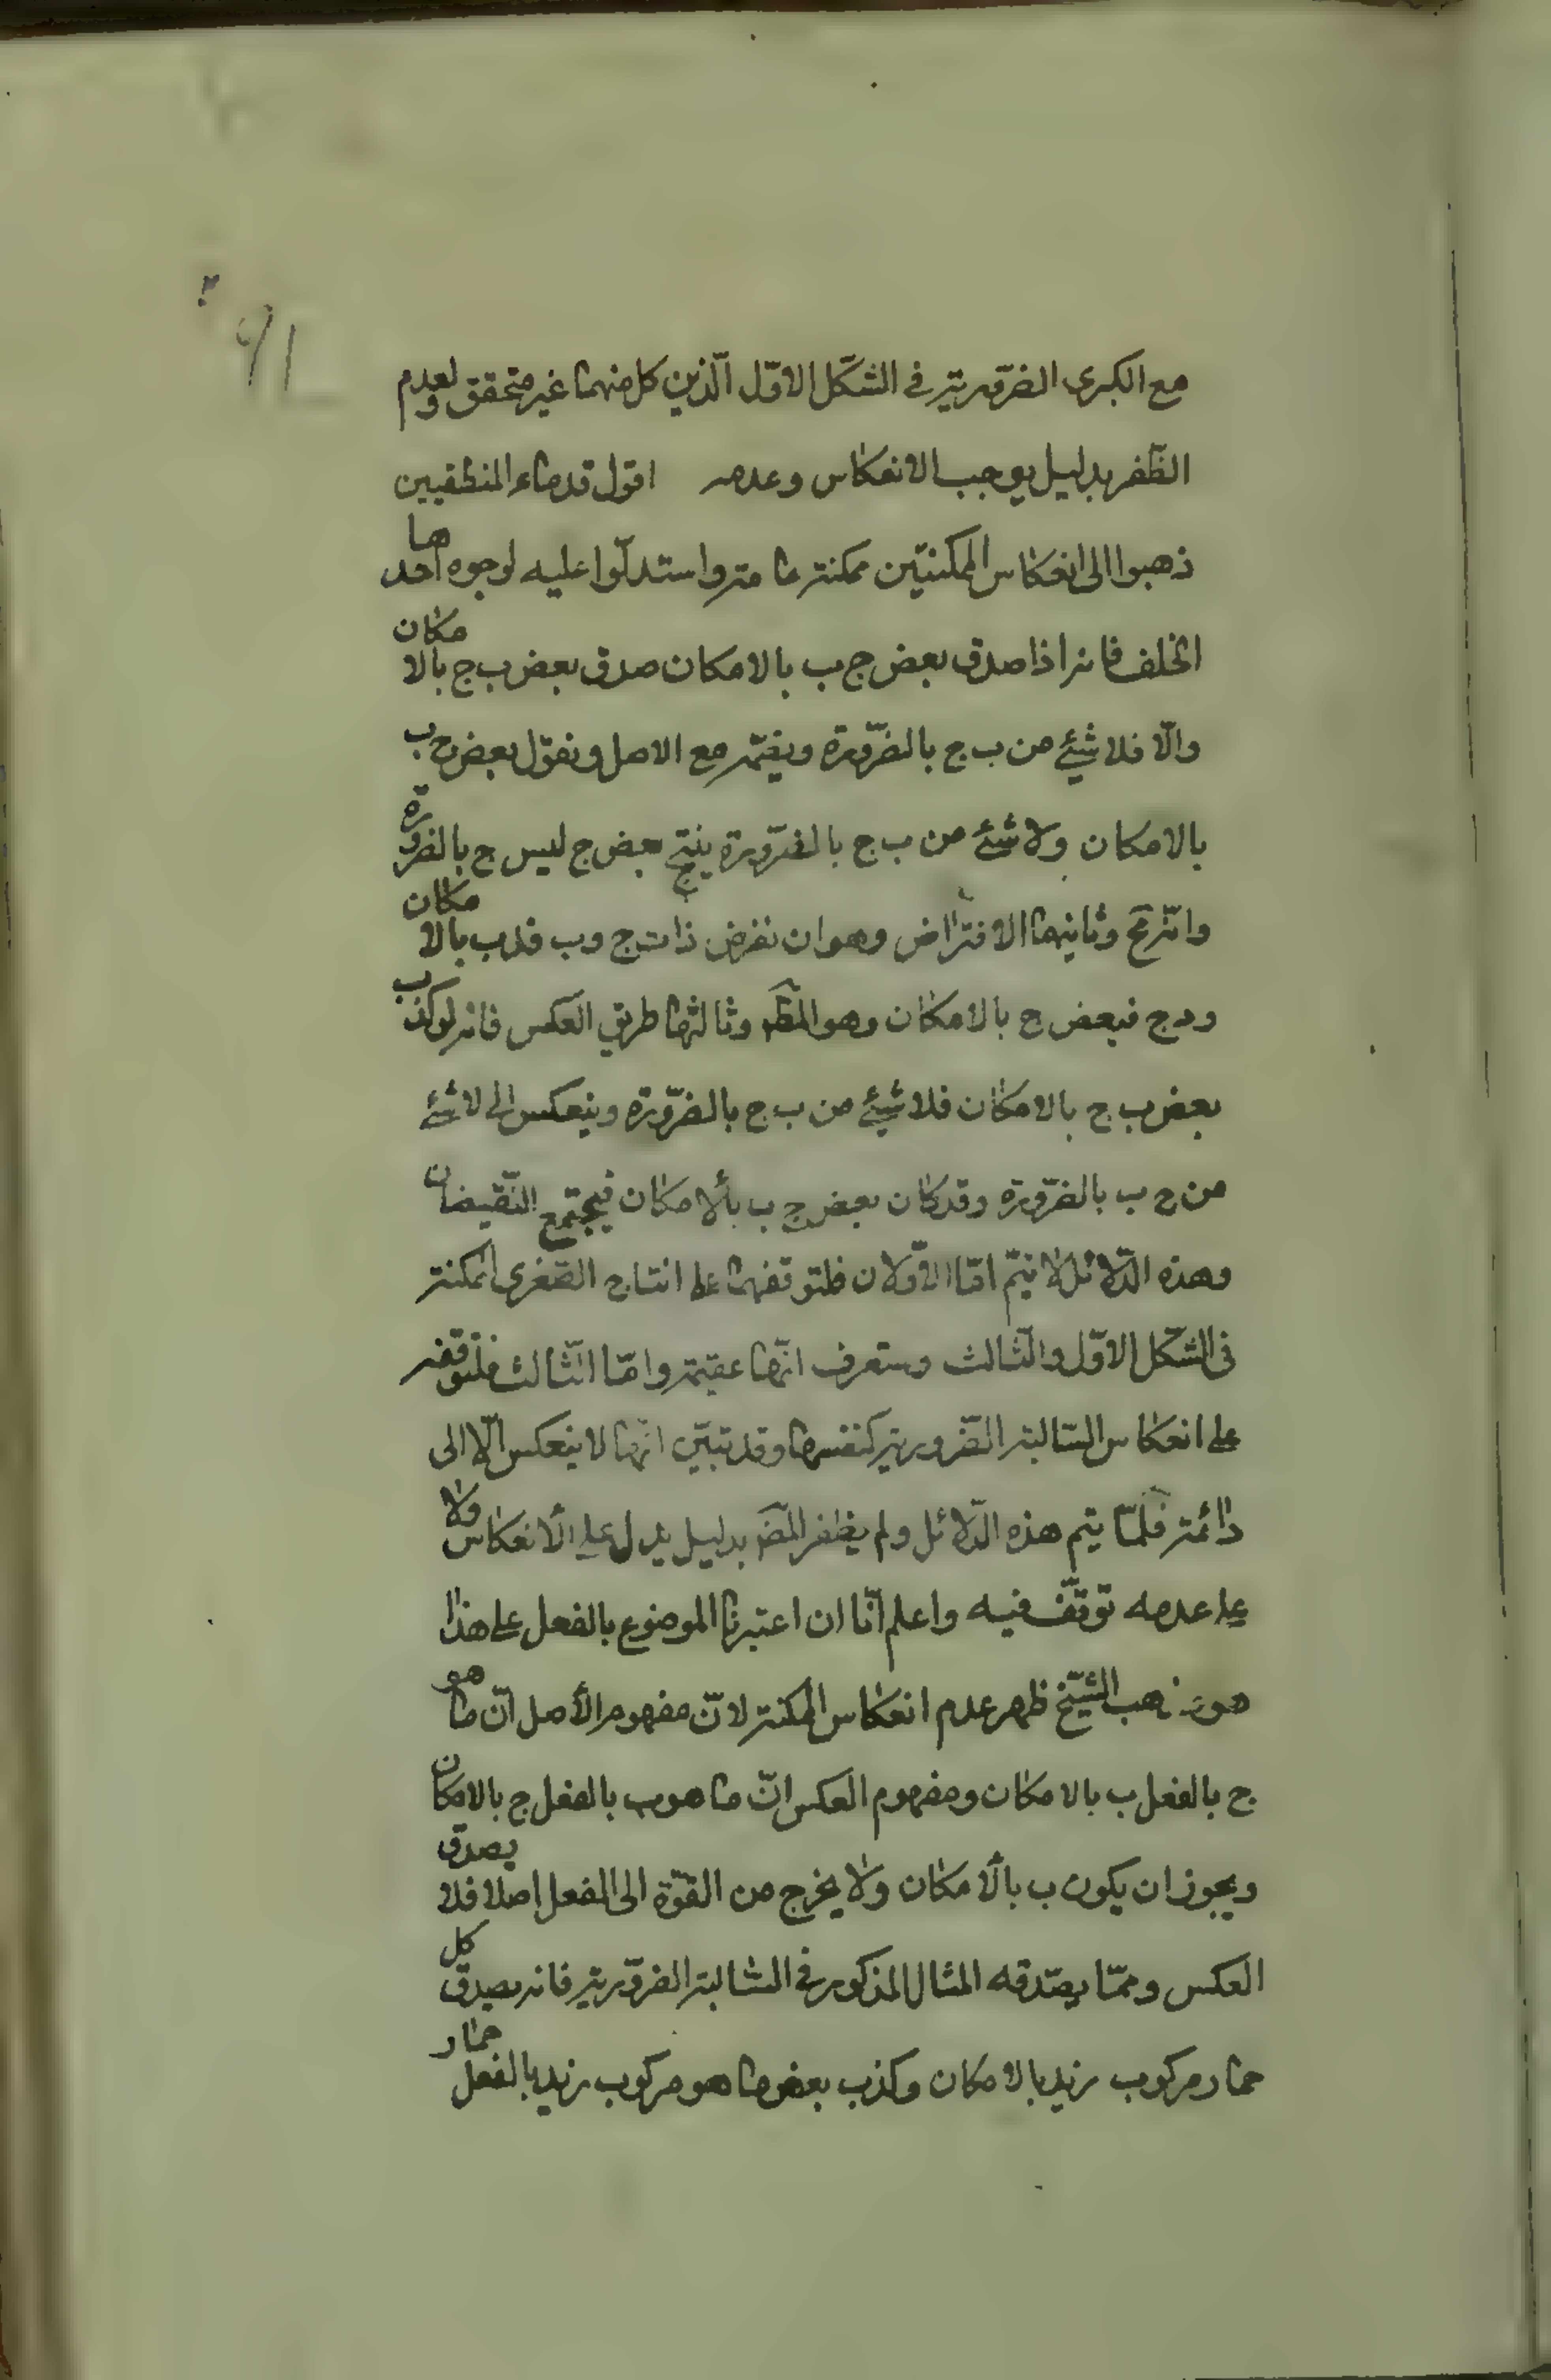 ٩٢
مع الكبرى الضّروريّة فى الشّكل الاوّل الّذين كل منهما غير متحقق ولعدم
الظّفر بدليل يوجب الانعكاس وعدمه اقول قدماء المنطقيين
ذهبوا الى انعكاس الممكنتين ممكنة عامة واستدلّوا عليه لوجوه احدها
الخلف فانه اذا صدق بعض ج ب بالامكان صدق بعض ب ج بالامكان
والّا فلا شيئ من ب ج بالضّرورة ويضمّه مع الاصل ونقول بعض ج ب
بالامكان ولا شئ من ب ج بالضّرورة ينتج بعض ج ليس ج بالضرورة
وانّه مح وثانيهما الافتراض وهو ان نفرض ذات ج وب فدب بالامكان
ودج فبعض ج بالامكان وهو المطّ وثالثها طريق العكس فانه لو كذب
بعض ب ج بالامكان فلا شيئ من ب ج بالضّرورة وينعكس الى لا شئ
من ج ب بالضّرورة وقد كان بعض ج ب بألامكان فيجتمع النّقيضان
وهذه الدّلائل لا يتمّ امّا الاوّلان فلتوقفهما على انتاج الصّغرى الممكنة
فى الشّكل الاوّل والثّالث وستعرف انّها عقيمة وامّا الثّالث فلتوقفه
على انعكاس السّالبة الضّرورية كنفسها وقد تبيّن انّها لا ينعكس الّا الى
دائمة فلمّا يتم هذه الدّلائل ولم يظفر المصّ بدليل يدل على الانعكاس ولا
على عدمه توقّف فيه واعلم انّا ان اعتبرنا الموضوع بالفعل على هذا
هو مذهب الشّيخ ظهر عدم انعكاس الممكنة لانّ مفهوم الأصل انّ ما هو
ج بالفعل ب بالامكان ومفهوم العكس انّ ما هو ب بالفعل ج بالامكان
ويجوز ان يكون ب بألامكان ولا يخرج من القوّة الى الفعل اصلا فلا يصدق
العكس وممّا يصّدقه المثال المذكور فى السّالبة الضّروريّة فانه يصدق كل
حمار مركوب زيد بالامكان وكذب بعض ما هو مركوب زيد بالفعل حمار